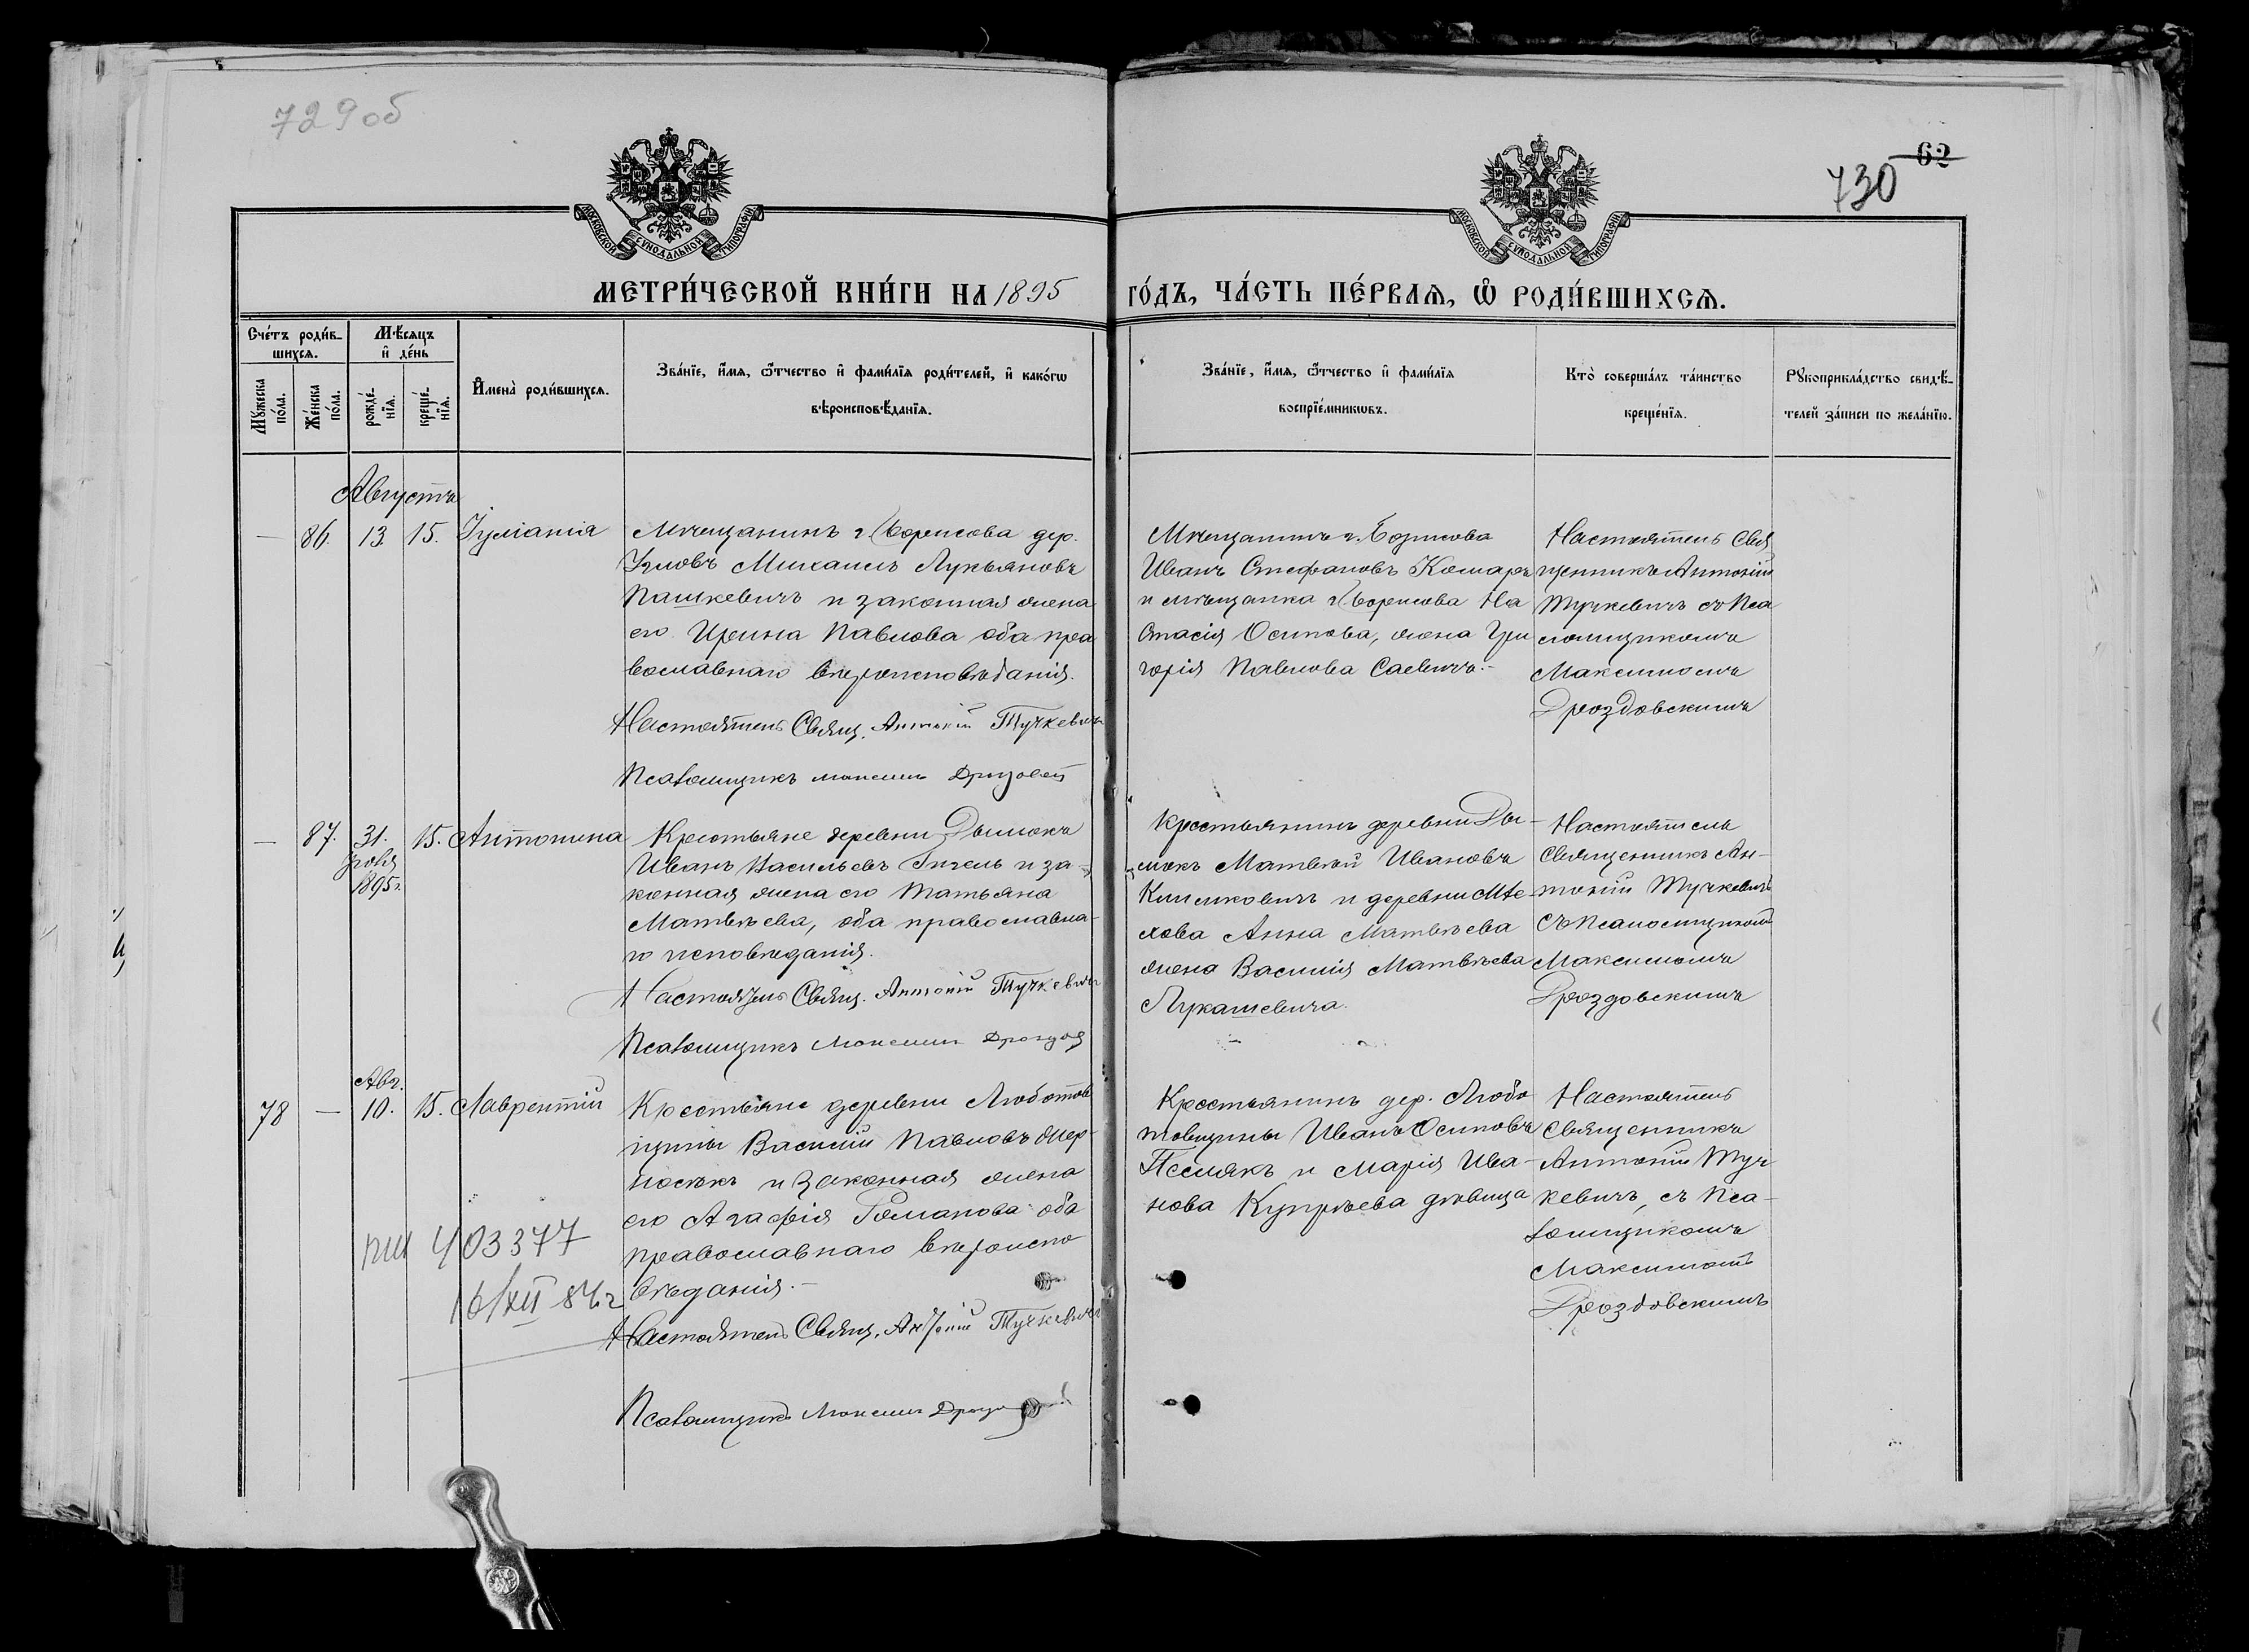 729об
62
730
МОСКОВСКОЙ СѴНОДАЛЬНОЙ ТИПОГРАФІИ
МОСКОВСКОЙ СѴНОДАЛЬНОЙ ТИПОГРАФІИ
МЕТРИ́ЧЕСКОЙ КНИ́ГИ НА 1895 ГО́ДЪ, ЧА́СТЬ ПЕ́РВАѦ, Ѡ҆ РОДИ́ВШИХСѦ.
Сче́тъ роди́в-
шихсѧ.
Мꙋ́жеска по́ла.
Же́нска по́ла.
Мѣ́сѧцъ
и҆ де́нь
рожде́-
нїѧ.
креще́-
нїѧ.
И҆мена̀ роди́вшихсѧ.
Зва́нїе, и҆́мѧ, ѻ҆́тчество и҆ фами́лїѧ роди́телей, и҆ како́гѡ
вѣроисповѣ́данїѧ.
Зва́нїе, и҆́мѧ, ѻ҆́тчество и҆ фами́лїѧ
воспрїе́мникѡвъ.
Кто̀ соверша́лъ та́инство
креще́нїѧ.
Рꙋкоприкла́дство свидѣ́-
телей за́писи по жела́нїю.
Августъ
— 86. 13. 15. Іуліанія
Мѣщанинъ г. Борисова дер.
Михаилъ Лукьяновъ
Пашкевичъ и законная жена
его Ирина Павлова оба пра
вославнаго вѣроисповѣданія.
Настоятель Свящ. Антоній Тучкевичъ
Псаломщикъ Максимъ
Мѣщанинъ г. Борисова
Иванъ Стефановъ Комаръ
и мѣщанка г. Борисова На
стасія Осипова, жена Гри
горія Павлова Саевичъ.-
Настоятель Свя
щенникъ Антоній
Тучкевичъ съ Пса
ломщикомъ
Максимомъ
Дроздовскимъ
— 87. 31. Іюля 1895г. 15. Антонина
Крестьяне деревни Дымокъ
Иванъ Васильевъ и за-
конная жена его Татьяна
Матвѣева, оба православна-
го исповѣданія.
Настоятель Свящ. Антоній Тучкевичъ
Псаломщикъ Максимъ
Крестьянинъ деревни Ды-
мокъ Матвѣй Ивановъ
Климковичъ и деревни Мѣ-
хова Анна Матвѣева
жена Василія Матвѣева
Лукашевича.
Настоятель
Священникъ Ан-
тоній Тучкевичъ
съ Псаломщикомъ
Максимомъ
Дроздовскимъ
78 — Авг. 10. 15. Лаврентій
Крестьяне деревни Любатов
щины Василій Павловъ Жер-
носѣкъ и законная жена
его Агафія Романова оба
православнаго вѣроиспо
вѣданія.-
Настоятель Свящ. Антоній Тучкевичъ
Псаломщикъ Максимъ
403377
16/XII 84г
Крестьянинъ дер. Любо
товщины Иванъ Осиповъ
Песлякъ и Марія Ива-
нова Купрѣева дѣвица
Настоятель
Священникъ
Антоній Туч
кевичъ, съ Пса-
ломщикомъ
Максимомъ
Дроздовскимъ